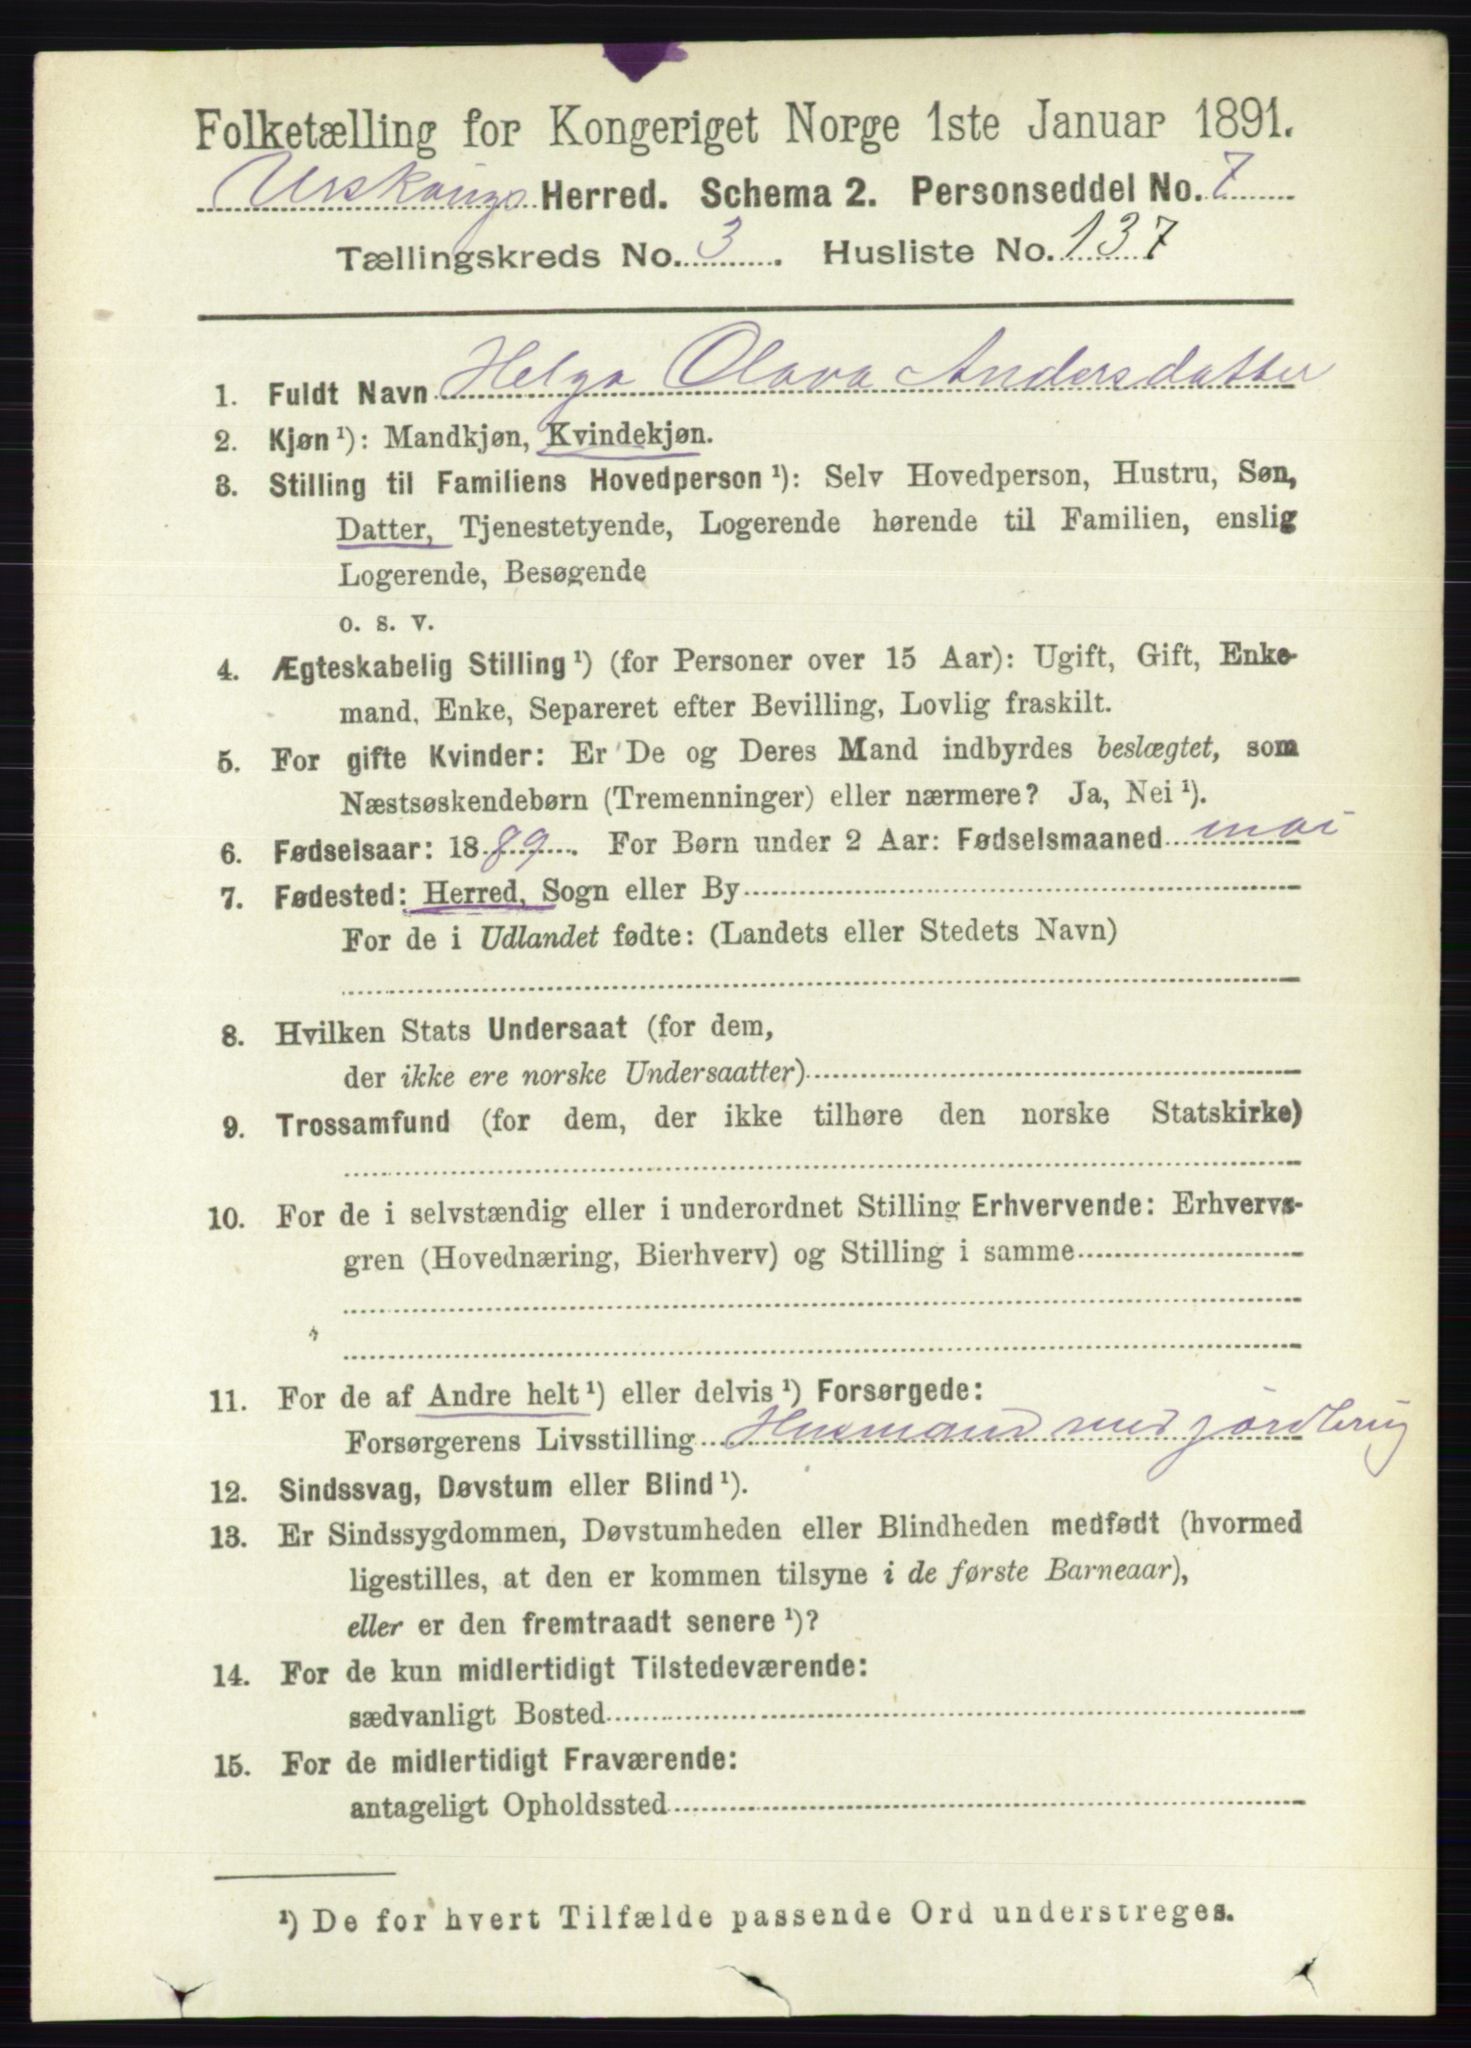 Folketælling for Kongeriget Norge 1ste Januar 1891.
Urskougs Herred. Schema 2. Personseddel No. 7
Tællingskreds No. 3. Husliste No. 137
1. Fuldt Navn Helga Olava Andersdatter
2. Kjøn ¹): Mandkjøn, Kvindekjøn.
3. Stilling til Familiens Hovedperson ¹): Selv Hovedperson, Hustru, Søn,
Datter, Tjenestetyende, Logerende hørende til Familien, enslig
Logerende, Besøgende
o. s. v.
4. Ægteskabelig Stilling ¹) (for Personer over 15 Aar): Ugift, Gift, Enke-
mand, Enke, Separeret efter Bevilling, Lovlig fraskilt.
5. For gifte Kvinder: Er De og Deres Mand indbyrdes beslægtet, som
Næstsøskendebørn (Tremenninger) eller nærmere? Ja, Nei ¹).
6. Fødselsaar: 1889. For Børn under 2 Aar: Fødselsmaaned mai
7. Fødested: Herred, Sogn eller By
For de i Udlandet fødte: (Landets eller Stedets Navn)
8. Hvilken Stats Undersaat (for dem,
der ikke ere norske Undersaatter)
9. Trossamfund (for dem, der ikke tilhøre den norske Statskirke)
10. For de i selvstændig eller i underordnet Stilling Erhvervende: Erhvervs-
gren (Hovednæring, Bierhverv) og Stilling i samme
11. For de af Andre helt ¹) eller delvis ¹) Forsørgede:
Forsørgerens Livsstilling Husmand med jordbrug
12. Sindssvag, Døvstum eller Blind ¹).
13. Er Sindssygdommen, Døvstumheden eller Blindheden medfødt (hvormed
ligestilles, at den er kommen tilsyne i de første Barneaar),
eller er den fremtraadt senere ¹)?
14. For de kun midlertidigt Tilstedeværende:
sædvanligt Bosted
15. For de midlertidigt Fraværende:
antageligt Opholdssted
¹) De for hvert Tilfælde passende Ord understreges.